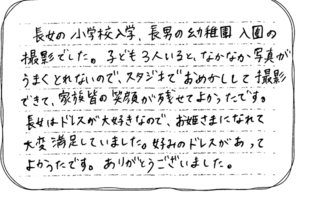 長女の小学校入学、長男の幼稚園入園の
撮影でした。子ども3人いると、なかなか写真が
うまくとれないので、スタジオでおめかしして撮影
できて、家族皆の笑顔が残せてよかったです。
長女はドレスが大好きなので、お姫さまになれて
大変満足していました。好みのドレスがあって
よかったです。ありがとうございました。